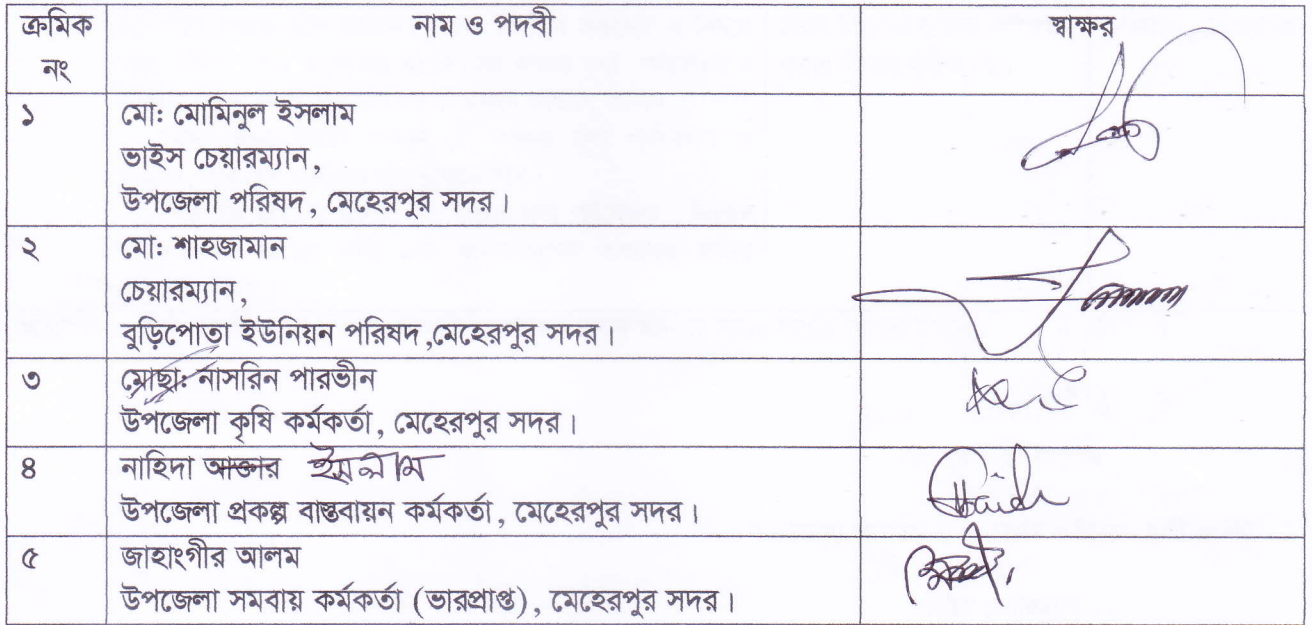 ক্রমিক নং নাম ও পদবী স্বাক্ষর
১ মো: মোমিনুল ইসলাম
ভাইস চেয়ারম্যান,
উপজেলা পরিষদ, মেহেরপুর সদর।
২ মো: শাহজামান
চেয়ারম্যান,
বুড়িপোতা ইউনিয়ন পরিষদ,মেহেরপুর সদর।
৩ মোছা: নাসরিন পারভীন
উপজেলা কৃষি কর্মকর্তা, মেহেরপুর সদর।
৪ নাহিদা আক্তার ইসলাম
উপজেলা প্রকল্প বাস্তবায়ন কর্মকর্তা, মেহেরপুর সদর।
৫ জাহাংগীর আলম
উপজেলা সমবায় কর্মকর্তা (ভারপ্রাপ্ত), মেহেরপুর সদর।